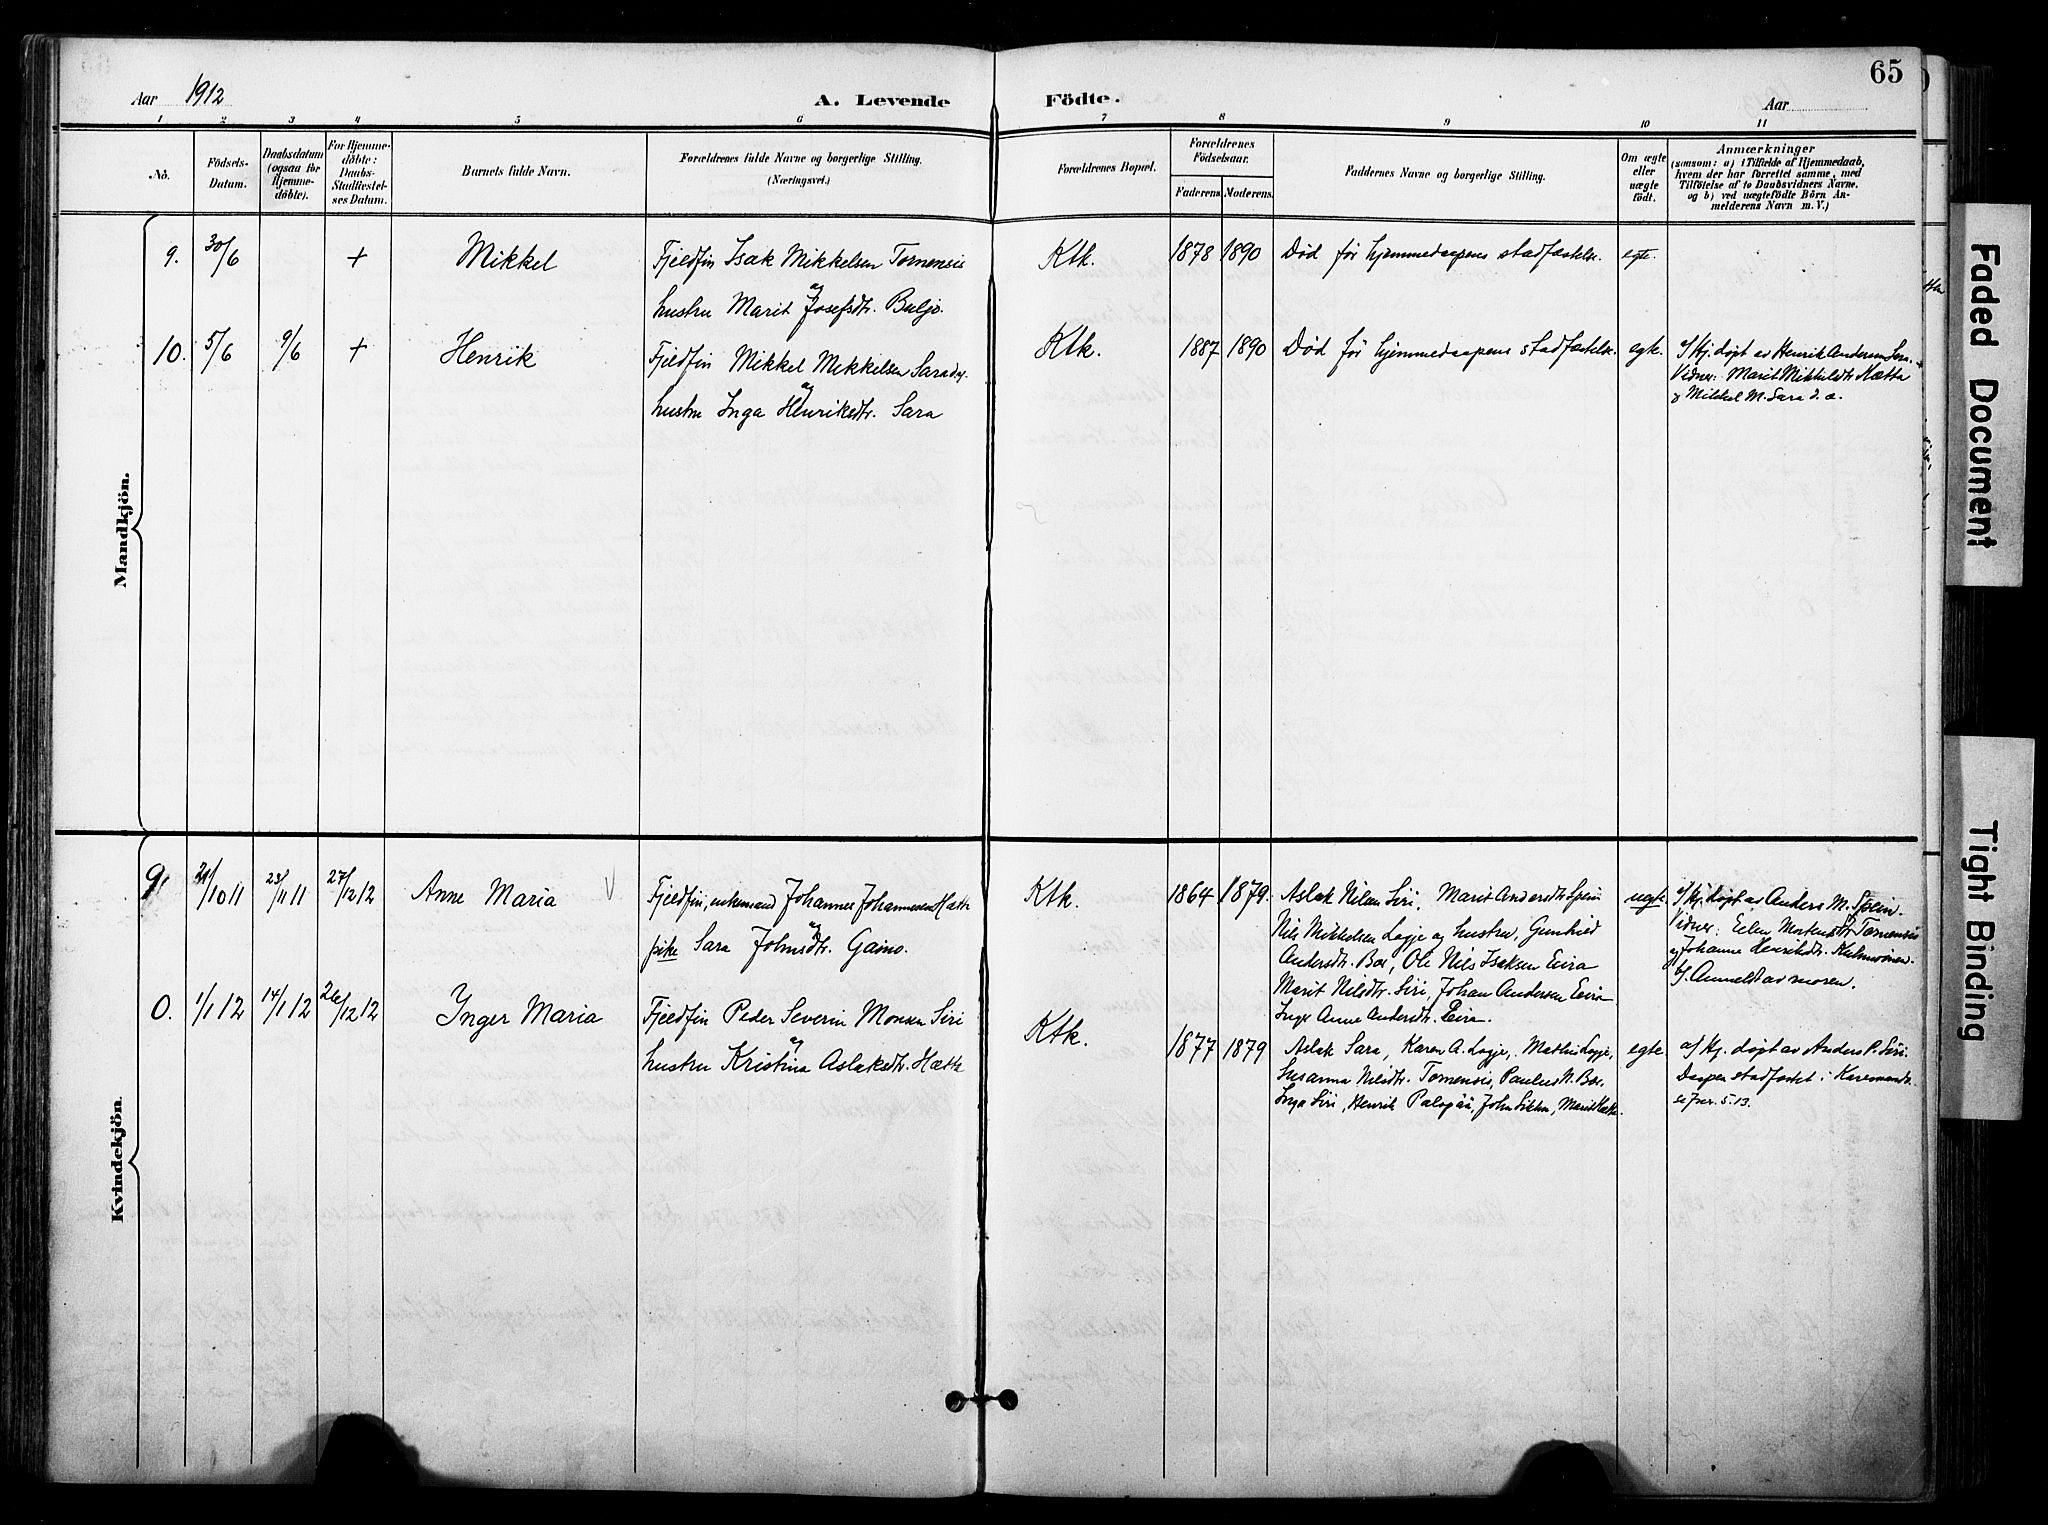 65
Aar 1912 A. Levende Födte. Aar
1 2 3 4 5 6 7 8 9 10 11
No.
Födsels-
Datum.
Daabsdatum
(ogsaa for
Hjemme-
döbte).
For Hjemme-
döbte:
Daabs-
Stadfæstel-
ses Datum.
Barnets fulde Navn.
Forældrenes fulde Navne og borgerlige Stilling.
(Næringsvei.)
Forældrenes Bopæl.
Forældrenes
Födselsaar.
Faderens. Moderens.
Faddernes Navne og borgerlige Stilling.
Om ægte
eller
uægte
födt.
Anmærkninger
(saasom: a) i Tilfælde af Hjemmedaab,
hvem der har forrettet samme, med
Tilföielse af to Daabsvidners Navne.
og b) ved uægtefödte Börn An-
melderens Navn m. V.)
Mandkjön.
9. 30/6 + Mikkel Fjeldfin Isak Mikkelsen Tornensis Ktk. 1878 1890 Død før hjemmedaapens stadfæstelse. egte.
og
hustru Marit Josefsdtr. Buljo.
10. 5/6 9/6 + Henrik Fjeldfin Mikkel Mikkelsen Sara Ktk. 1887 1890 Død før hjemmedaapens stadfæstelse. egte. Hj. døpt av Henrik Andersen Sara.
og
hustru Inga Henriksdtr. Sara
Vidner: Marit Mikkelsdtr. Hætta
Mikkel M. Sara d. æ.
Kvindekjön.
9. 21/10 11 23/11 11 27/12 12 Anne Maria Fjeldfin, enkemand Johannes Johannesen Hætta Ktk. 1864 1879. Aslak Nilsen Siri, Marit Andersdtr. Spein uegte. a/ Hj. døpt av Anders M. Spein.
og
pike Sara Johnsdtr. Gaino.
Nils Mikkelsen Logje og hustru, Gunhild
Andersdtr. Boe, Ole Nils Isaksen Eira
Marit Nilsdtr. Siri, Johan Andersen Eira
Inger Anne Andersdtr. Eira.
Vidner: Ellen Tornensis
og Johanne Henriksdtr.
b/ Anmeldt av moren.
0. 1/1 12 14/1 12 26/12 12 Inger Maria Fjeldfin Peder Severin Monsen Siri Ktk. 1877 1879 Aslak Sara, Karen A. Logje, Mathis Logje, egte. a/ Hj. døpt av Anders P. Siri.
og
hustru Kristina Aslaksdtr. Hætta
Susanna Nilsdtr. Tornensis, Paulus N. Boe,
Inga Siri, Henrik Palojää, John Siklu, Marit Hætta.
Daapen stadfæstet i Karesuando
Faded Document
Tight Binding